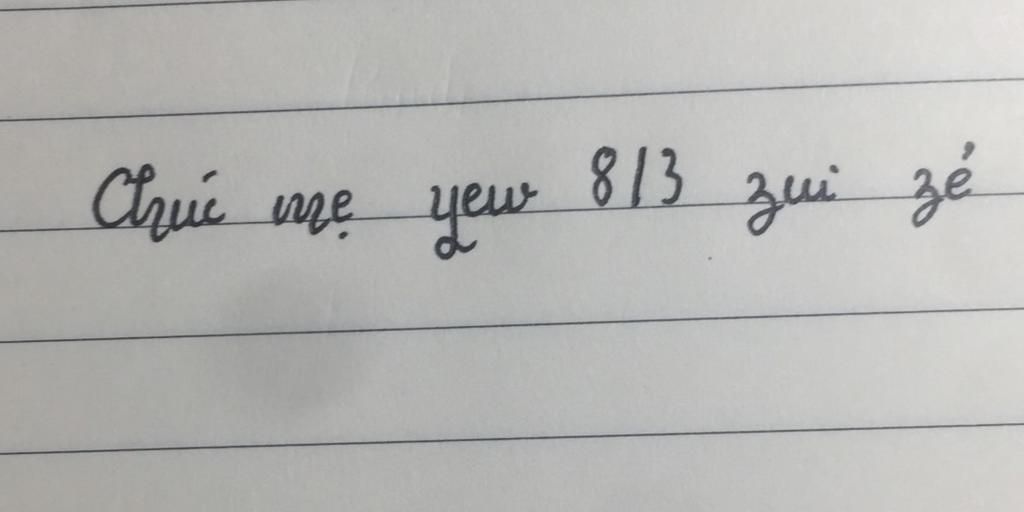 Chúc mẹ yew 8/3 zui zẻ